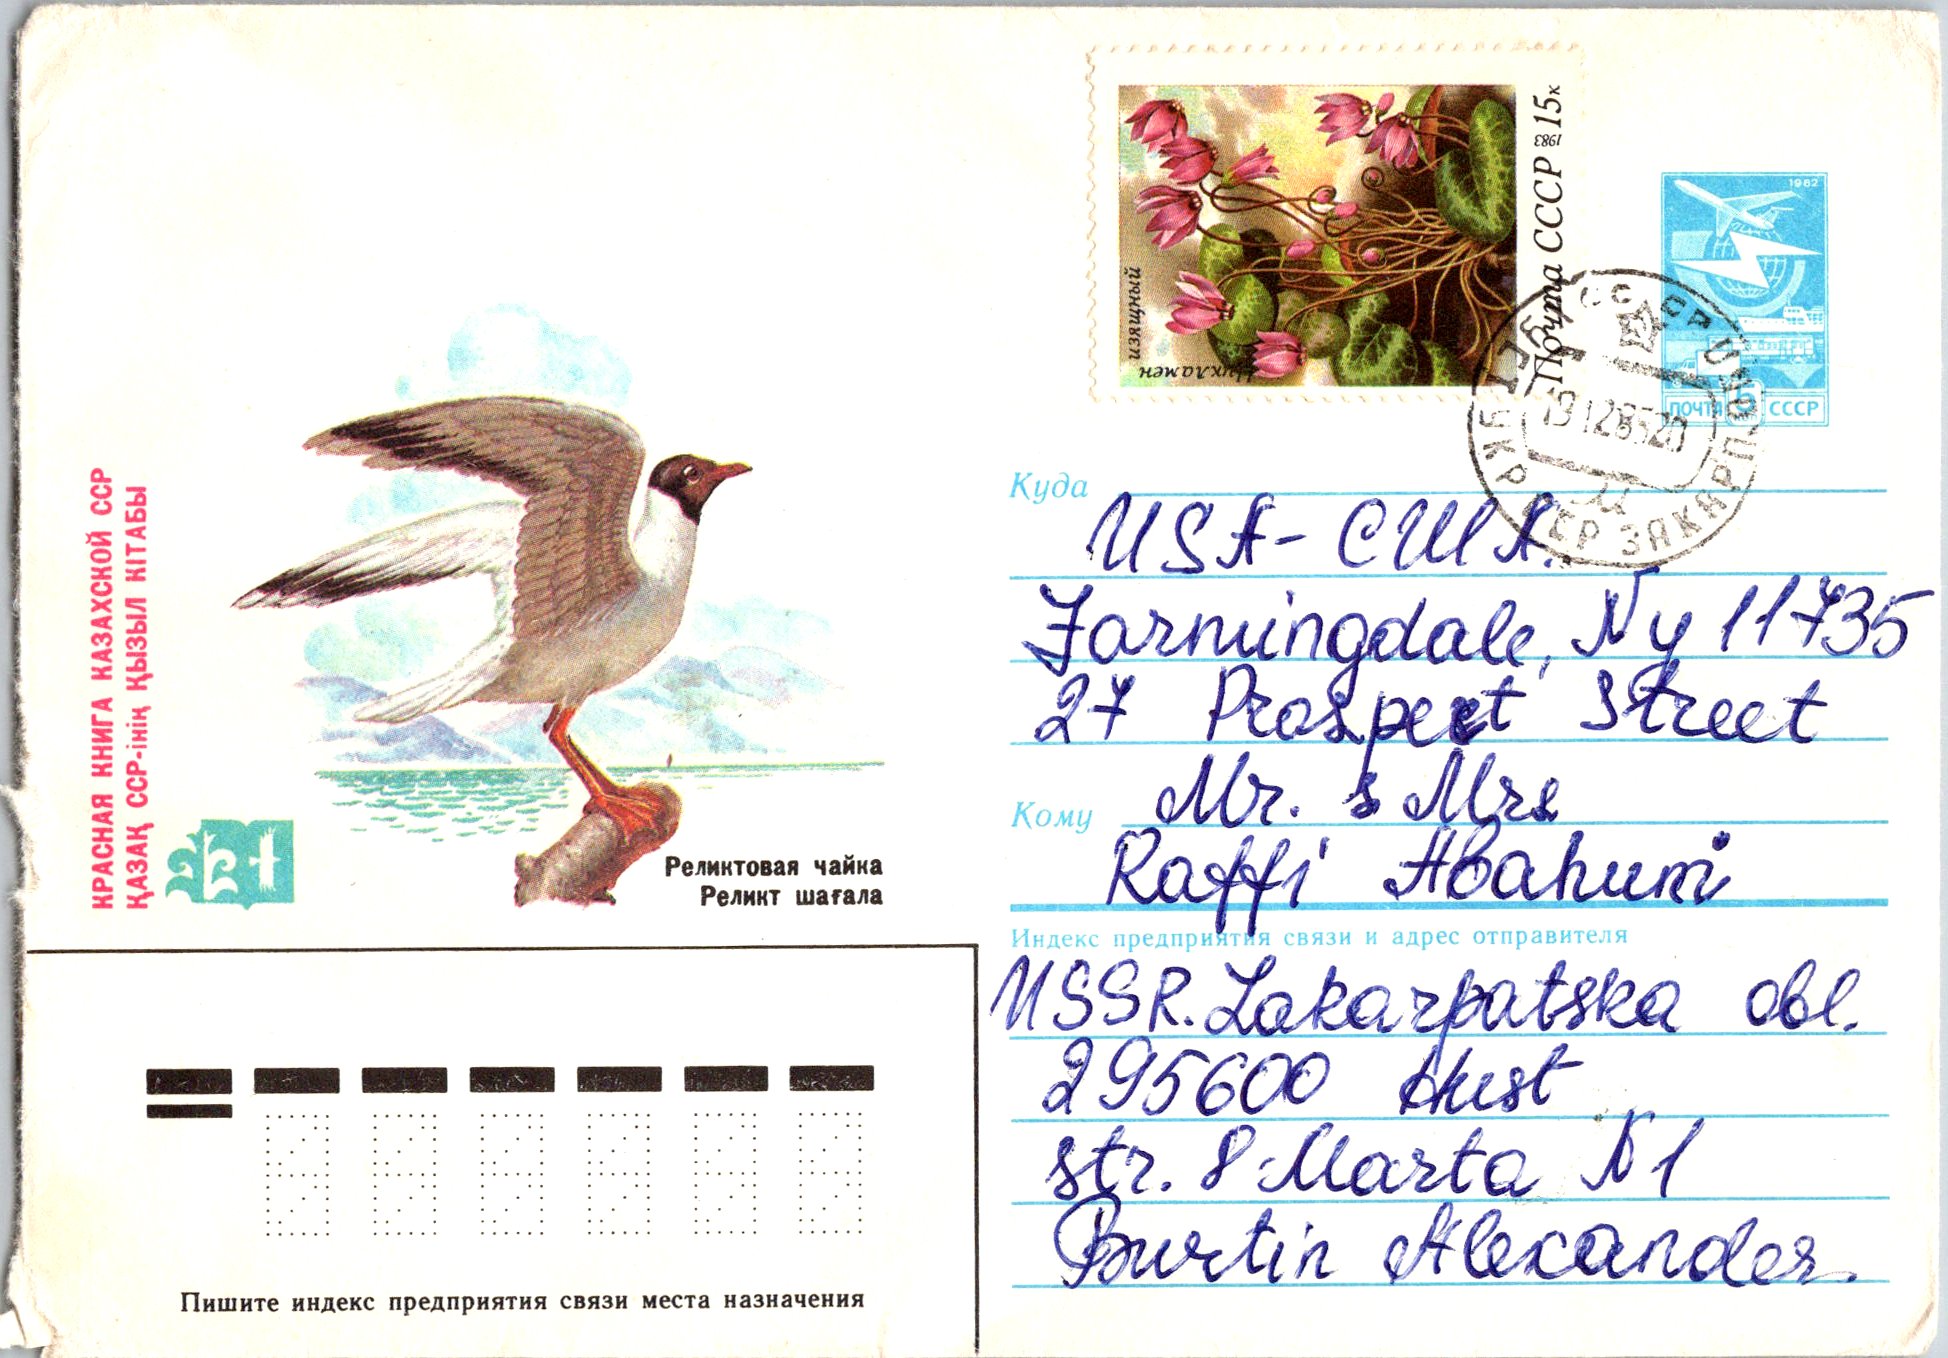 КРАСНАЯ КНИГА КАЗАХСКОЙ ССР
ҚАЗАҚ ССР-інің ҚЫЗЫЛ КІТАБЫ
Реликтовая чайка
Реликт шағала
Пишите индекс предприятия связи места назначения
Цикламен
изящный
Почта СССР 1983 15к
1982
ПОЧТА 5 СССР
СССР
УКР ССР ЗАКАРП
191285 20
Куда
USA - США.
Farmingdale, Ny 11735
27 Prospect Street
Кому
Mr. & Mrs
Raffi Abahuni
Индекс предприятия связи и адрес отправителя
USSR. Zakarpatska obl.
295600 Hust
str. 8 Marta N1
Burtin Alexander